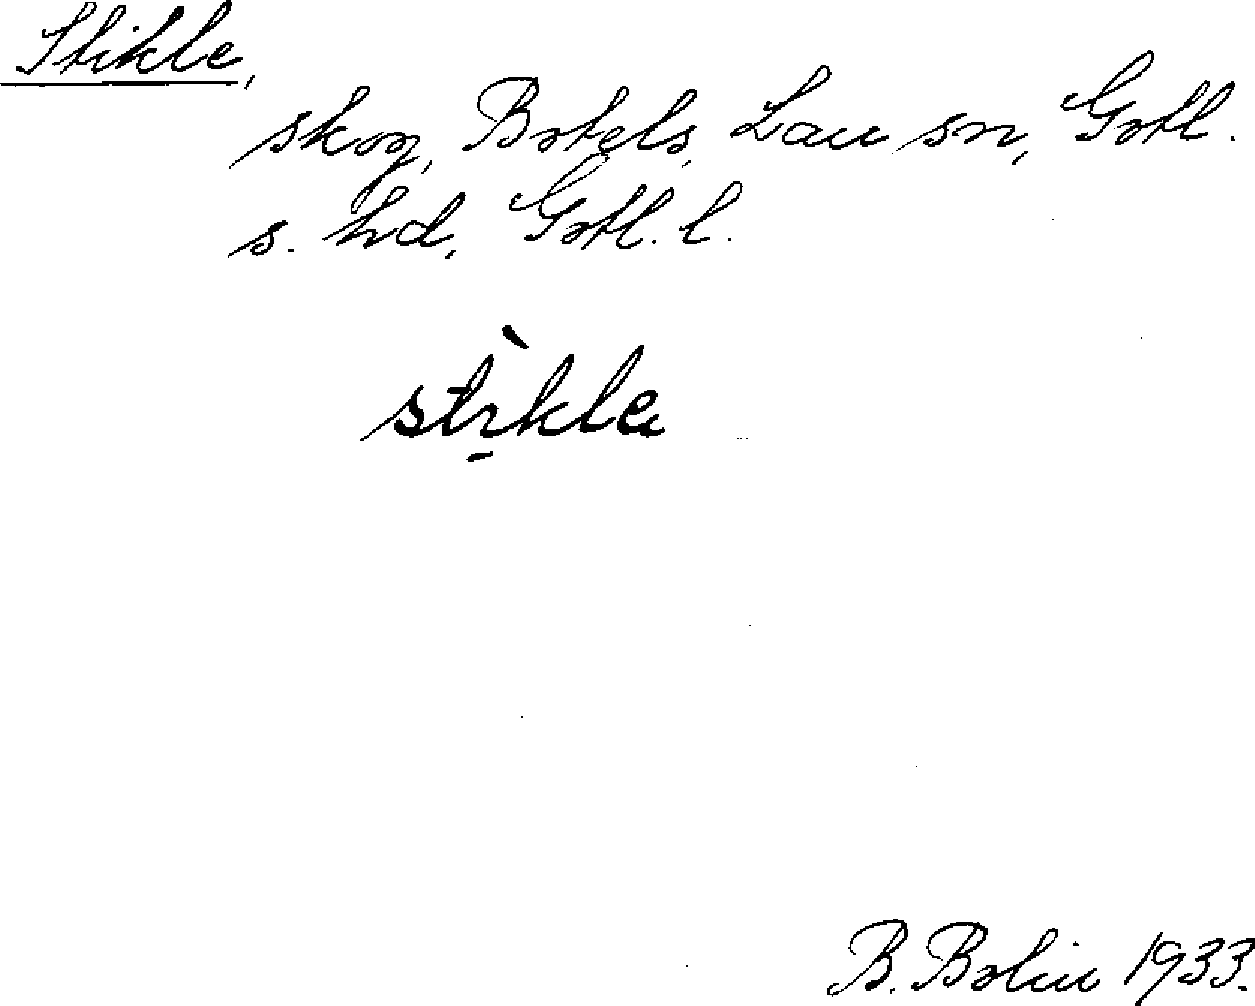 Stikle,
skog, Botels, Lau sn, Gotl.
s. hd, Gotl. l.
stìkle
B. Bolin 1933.